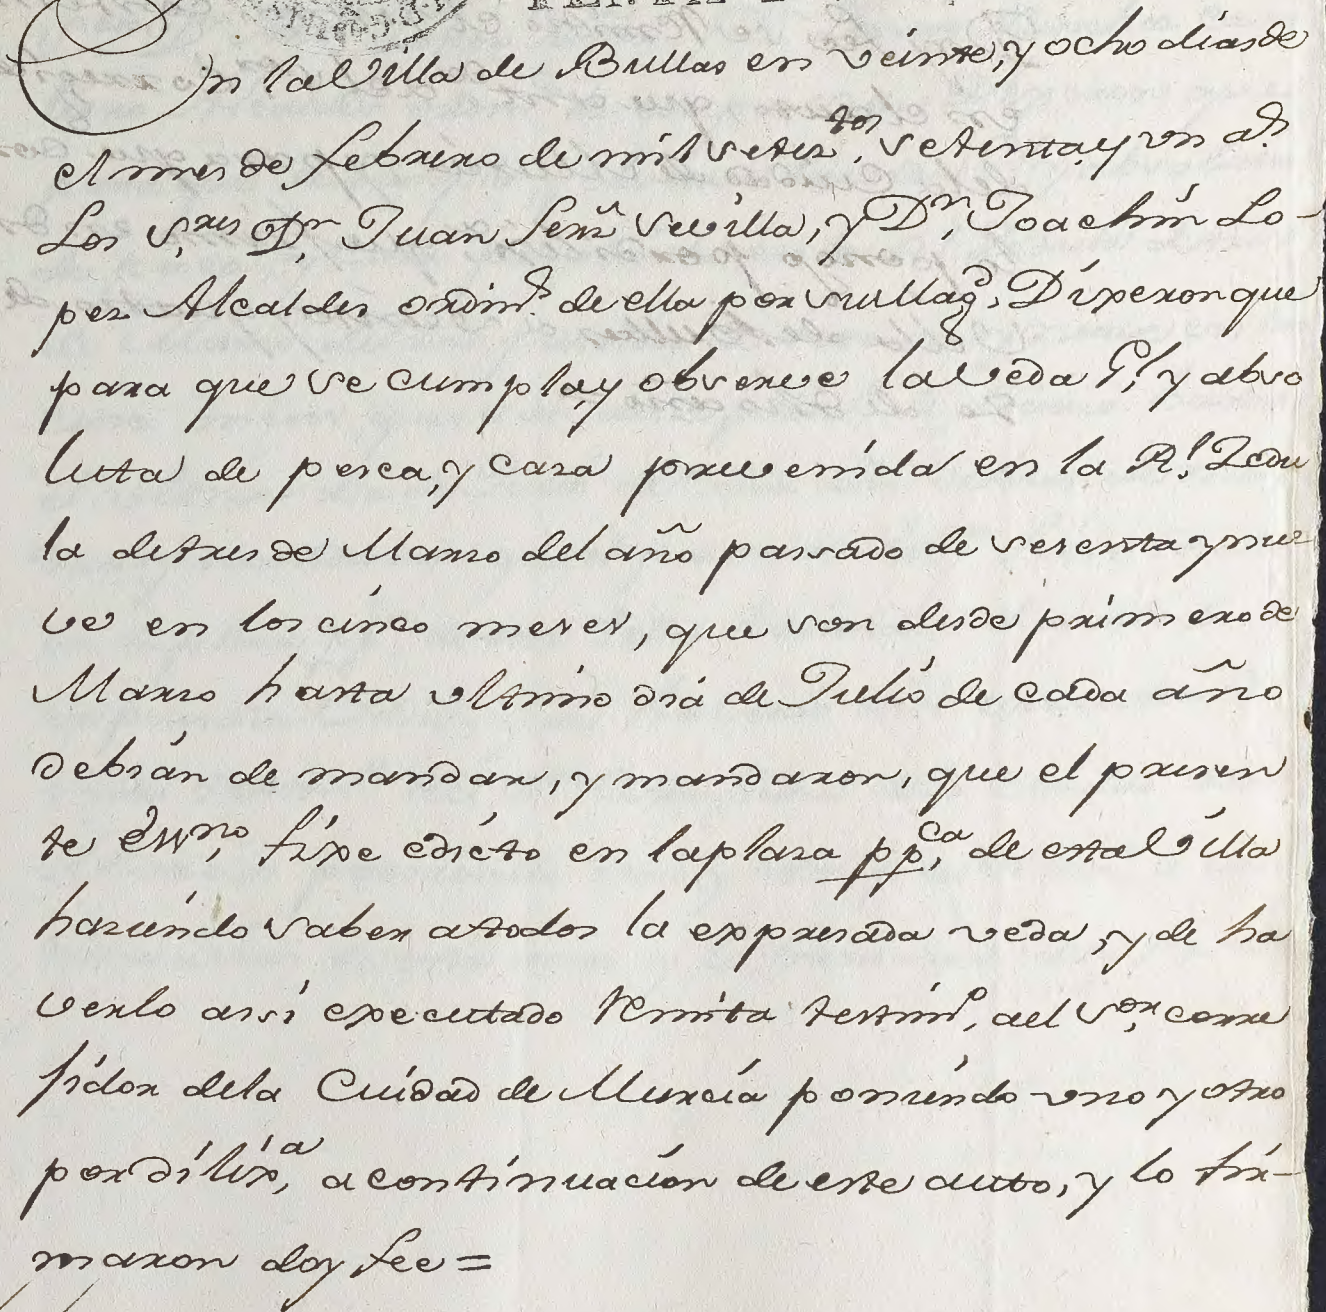 En la Villa de Bullas en veinte, y ocho dias de
el mes de febrero de mil setez.tos setenta y un a.s
Los S.res D.n Juan Fern.z Sevilla, y D.n Joachin Lo-
pez Alcaldes ordin.s de ella por su Mag.d Dixeron que
para que se cumpla, y observe la Veda G.l y abso
luta de pesca, y caza prevenida en la R.l Zedu
la de tres de Marzo del año passado de sesenta y nue-
ve en los cinco meses, que son desde primero de
Marzo hasta ultimo dia de Julio de cada año
debian de mandar, y mandaron, que el presen
te Ess.no fixe edicto en la plaza pp.ca de esta Villa
haziendo saber a todos la expresada veda, y de ha
verlo assi executado Remita testim.o al S.or corre
jidor de la Cuidad de Murcia poniendo uno y otro
por dilix.a a continuacion de este auto, y lo fir-
maron doy fee=